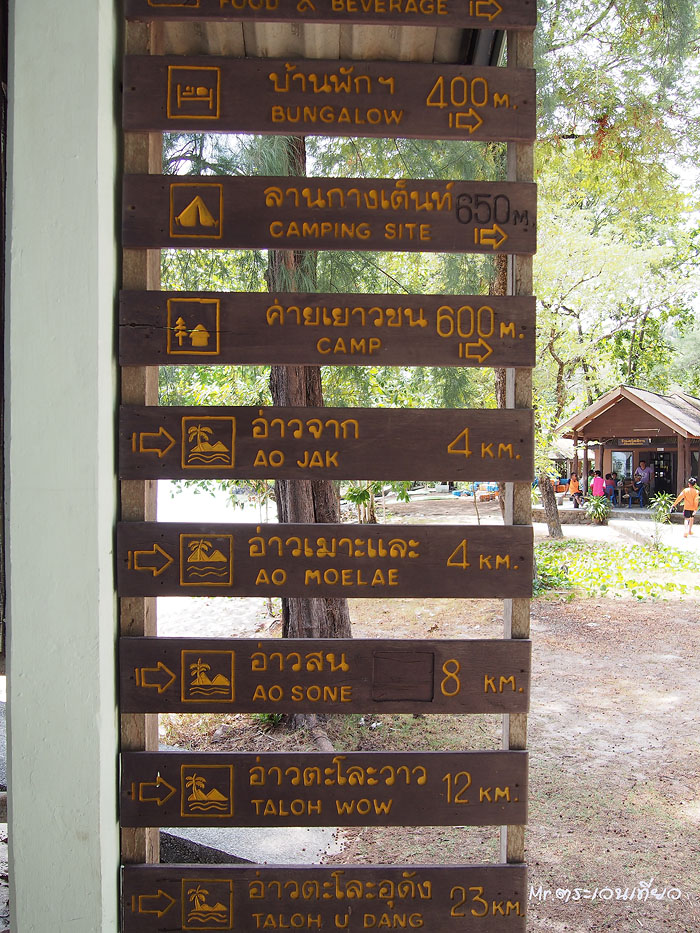 FOOD & BEVERAGE
บ้านพักฯ 400 M.
BUNGALOW
ลานกางเต็นท์ 650 M
CAMPING SITE
ค่ายเยาวชน 600 M.
CAMP
อ่าวจาก
AO JAK 4 KM.
อ่าวเมาะและ
AO MOELAE 4 KM.
อ่าวสน
AO SONE 8 KM.
อ่าวตะโละวาว
TALOH WOW 12 KM.
อ่าวตะโละอุดัง
TALOH U DANG 23 KM.
Mr.ตระเวนเที่ยว